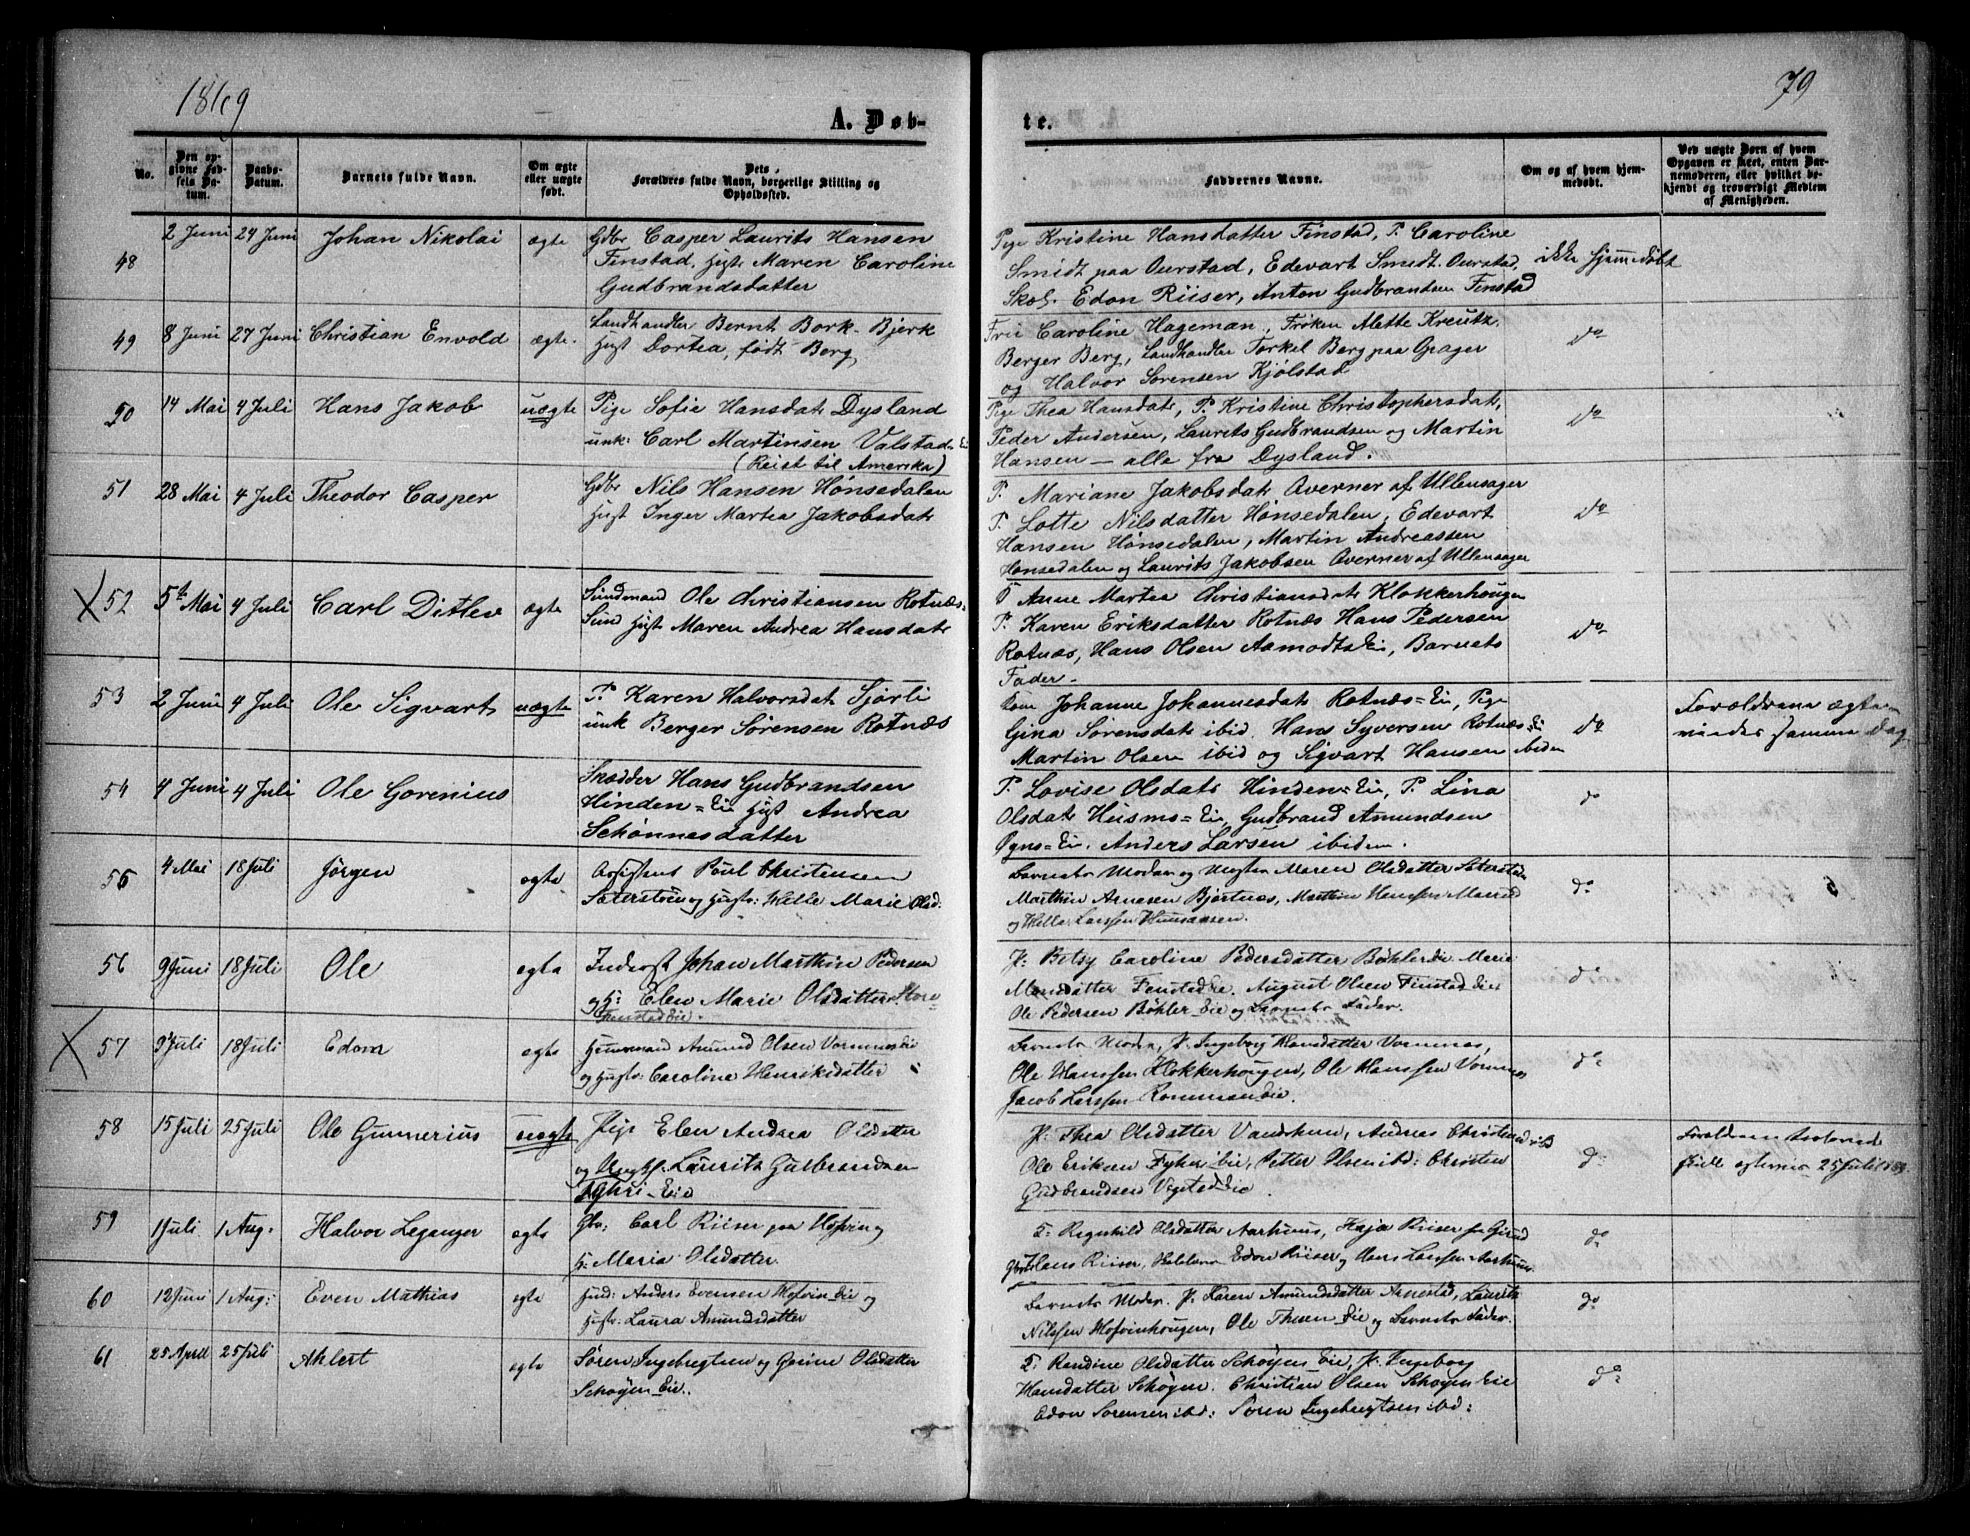 1869
79
A. Døb-
te.
No.
Den op-
givne Fød-
sels Da-
tum.
Daabs-
Datum.
Barnets fulde Navn.
Om ægte
eller uægte
født.
Dets
Forældres fulde Navn, borgerlige Stilling og
Opholdssted.
Faddernes Navne.
Om og af hvem hjem-
medøbt.
Ved uægte Børn af hvem
Opgaven er skeet, enten Bar-
nemoderen, eller hvilket be-
kjendt og troværdigt Medlem
af Menigheden.
48 2 Juni 24 Juni Johan Nikolai ægte Gdbr Casper Laurits Hansen
Finstad, Hust. Maren Caroline
Gudbrandsdatter
Pige Kristine Hansdatter Finstad, P. Caroline
Smidt paa Ourstad, Edevart Smidt Ourstad,
Skol. Edon Riiser, Anton Gudbrandsen Finstad
ikke hjemmedøbt
49 8 Juni 27 Juni Christian Envold ægte. Landhandler Bernt Bork-Bjerk
Hust Dortea, født Berg,
Frue Caroline Hageman, Frøken Alette Kreutz.
Berger Berg, Landhandler Torkel Berg paa Gager
og Halvor Sørensen Kjølstad
do
50 14 Mai 4 Juli Hans Jakob uægte Pige Sofie Hansdatr Dysland
unk: Carl Martinsen Valstad-Ei
(Reist til Amerika)
Pige Thea Hansdatr, P. Kristine Christophersdatr,
Peder Andersen, Laurits Gudbrandsen og Martin
Hansen – alle fra Dysland.
do
51 28 Mai 4 Juli Theodor Casper Gdbr Nils Hansen Hønsedalen
Hust Inger Martea Jakobsdatr
P. Mariane Jakobsdatr Averner af Ullensager
P. Lotte Nilsdatter Hønsedalen, Edevart
Hansen Hønsedalen, Martin Andreassen
Hønsedalen og Laurits Jakobsen Averner af Ullensager
do
X 52 5te Mai 4 Juli Carl Ditlev ægte Sundmand Ole Christiansen Rotnæs-
Sund Hust Maren Andrea Hansdatr
P Anne Martea Christiansdatr Klokkerhougen
P. Karen Eriksdatter Rotnæs Hans Pedersen
Rotnæs, Hans Olsen Aamodts Ei, Barnets
Fader.
do
53 2 Juni 4 Juli Ole Sigvart uægte P. Karen Halvorsdat Sjørli
unk Berger Sørensen Rotnæs
Kone Johanne Johannesdatr Rotnæs=Ei, Pige
Gina Sørensdatr ibid. Hans Syversen Rotnæs=Ei
Martin Olsen ibid og Sigvart Hansen ibidem
do
Forældrene ægte
viedes samme Dag
54 4 Juni 4 Juli Ole Gorenius Skrædder Hans Gudbrandsen
Hinden=Ei Hust Andrea
Schønnesdatter
P. Lovise Olsdatr Hinden=Ei, P. Lina
Olsdatr Husms=Ei, Gudbrand Amundsen
Ogns=Ei. Anders Larsen ibidem.
do
55 4 Mai 18 Juli Jørgen ægte Poul Christensen
Sæterstøen og Hustr: Helle Marie Olsd.
Barnets Moder og Maren Olsdatter Sæterstøen
Marthin Arnesen Bjørtnæs, Marthin Hanssen
og Helle Larssen
do
56 9 Juni 18 Juli Ole ægte Inderst Johan Marthin Pedersen
og H: Elen Marie Olsdatter Store
Finstad Eie.
P: Betsy Caroline Pedersdatter Bøhler Eie Marie
Monsdatter Finstad Eie. August Olsen Finstad Eie
Ole Pedersen Bøhler Eie og Barnets Fader.
do
X 57 9 Juli 18 Juli Edom ægte Huusmand Amund Olsen Vormnes Eie
og Hustr: Caroline Henriksdatter
Barnets Moder, P. Ingeborg Hansdatter Vormnæs,
Ole Hanssen Klokkerhougen, Ole Hanssen Vormnæs
Jacob Larssen Rommen Eie.
do
58 15 Juli 25 Juli Ole Gunnerius uægte Pige Elen Andrea Olsdatter
og Ungkf. Laurits Gulbrandsen
Fyhri-Eie
P: Thea Olsdatter, Andreas Christensen
Ole Eriksen Fyhri Eie, Petter Olsen ibd: Christen
Gudbrandsen Vigsted Eie.
do
Forældrene
25 Juli
59 1 Juli 1 Aug. Halvor Leganger ægte Gbr: Carl Riiser paa Hofvin og
H: Maria Olsdatter.
P: Ragnhild Olsdatter Aarhuus, Haja Riiser
Gbr Hans Riiser, Edon Riiser og Hans Larssen Aarhuus
do
60 12 Juni 1 Aug: Even Mathias ægte Huud: Anders Evensen Hofvin Eie og
Hustr: Laura Amundsdatter
Barnets Moder. P: Karen Amundsdatter Arnestad, Laurits
Nilssen Hofvinhougen, Ole Thesen Eie og Barnets Fader.
do
61 25 April 25 Juli Ahlert ægte Søren Ingebregtsen og Gorine Olsdatter
Schøyen Eie.
P: Randine Olsdatter Schøyen Eie, P. Ingeborg
Hansdatter Schøyen. Christian Olsen Schøyen Eie
Edon Sørensen ibd: Søren Ingebregtsen ibd:
do